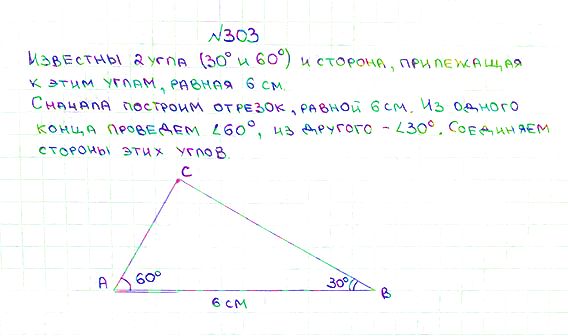 №303
Известны 2 угла (30° и 60°) и сторона, прилежащая
к этим углам, равная 6 см.
Сначала построим отрезок, равной 6 см. Из одного
конца проведем ∠60°, из другого - ∠30°. Соединяем
стороны этих углов.
C
A 60° 30° B
6 см